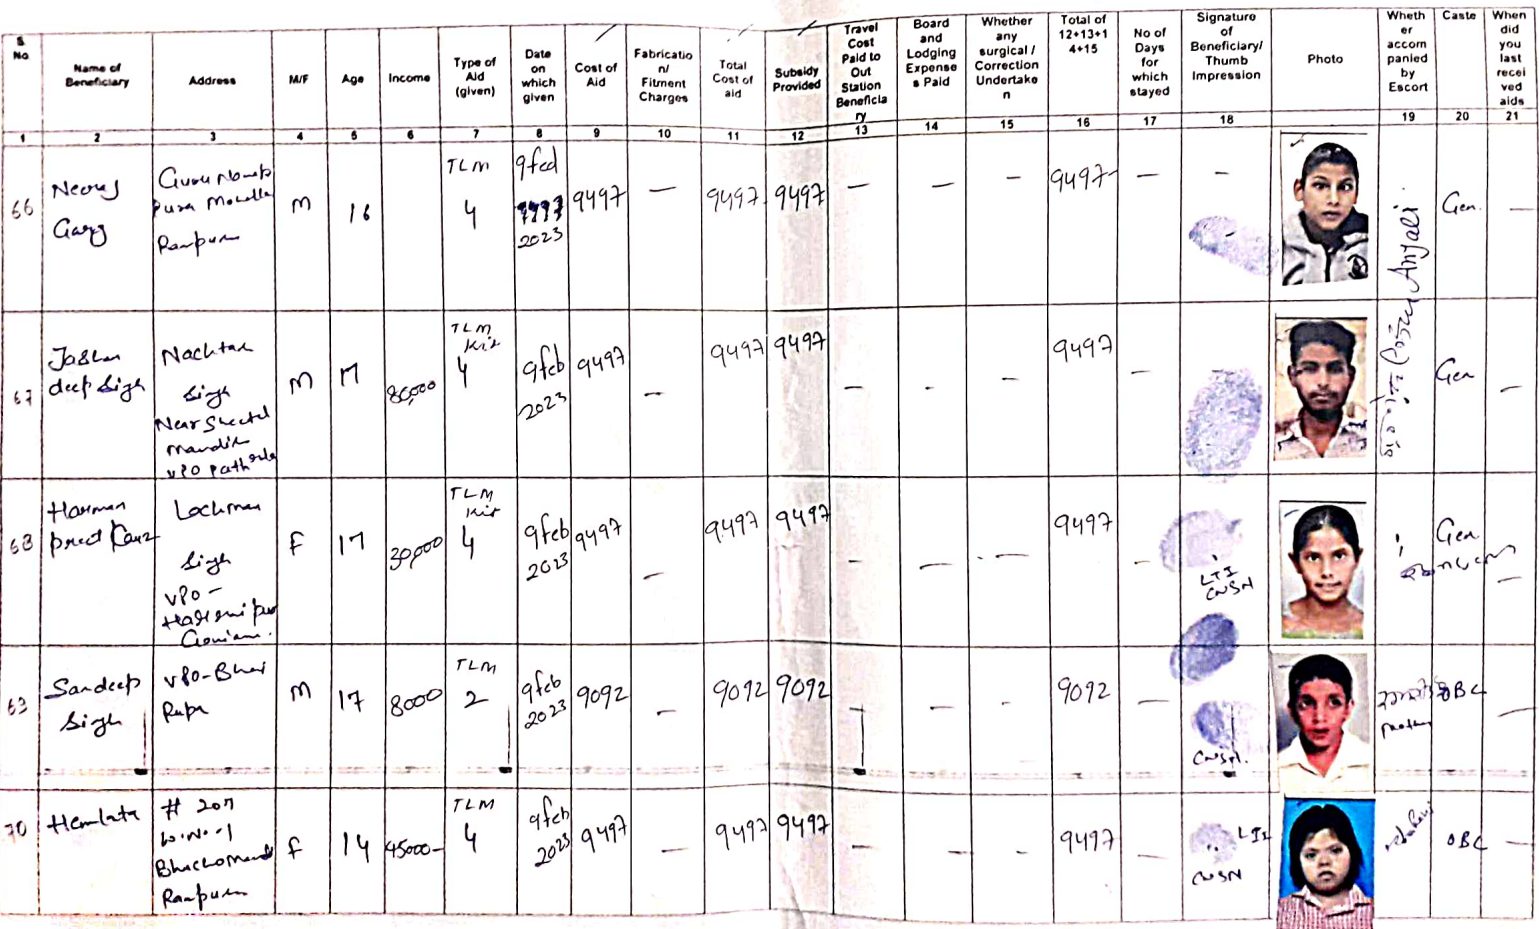 S No
Name of Beneficiary
Address
M/F
Age
Income
Type of Aid (given)
Date on which given
Cost of Aid
Fabricatio n/ Fitment Charges
Total Cost of aid
Subsidy Provided
Travel Cost Paid to Out Station Beneficia ry
Board and Lodging Expense s Paid
Whether any surgical / Correction Undertake n
Total of 12+13+1 4+15
No of Days for which stayed
Signature of Beneficiary/ Thumb Impression
Photo
Wheth er accom panied by Escort
Caste
When did you last recei ved aids
1 2 3 4 5 6 7 8 9 10 11 12 13 14 15 16 17 18 19 20 21
66 Neeraj Garg
Pura Rampura
M 16 TLM 4 9 fed 2023 9497 — 9497 9497 — — — 9497 — — Anjali Gen. —
67 deep Singh
Singh Near Mandir VPO
M 17 80,000 TLM Kit 4 9 feb 2023 9497 — 9497 9497 — - — 9497 — Gen —
68 Harman preet Kaur
Lachman Singh VPO -
F 17 30,000 TLM Kit 4 9 feb 2023 9497 — 9497 9497 — — — 9497 — LTI CWSN Gen —
69 Sandeep Singh
VPO - Bhai Rupa
M 17 8000 TLM 2 9 feb 2023 9092 — 9092 9092 — — — 9092 — CWSN. Mother OBC —
70 Hemlata
# 207 W.No-1 Bhucho Mandi Rampura
F 14 45000- TLM 4 9 feb 2023 9497 — 9497 9497 — — — 9497 — LTI CWSN OBC —